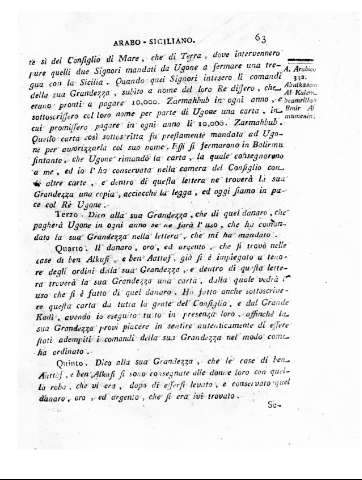 ARABO - SICILIANO. 63
te sì del Consiglio di Mare, che di Terra, dove intervennero
pure quelli due Signori mandati da Ugone a fermare una tre-
gua con la Sicilia. Quando quei Signori intesero li comandi
della sua Grandezza, subito a nome del loro Re dissero, che
erano pronti a pagare 10,000. Zarmahbub in ogni anno, e
sottoscrissero col loro nome per parte di Ugone una carta, in
cui promisero pagare in ogni anno li 10,000. Zarmahbub.
Quella carta così sottoscritta fu prestamente mandata ad Ugo-
ne per autorizzarla col suo nome. Essi si fermarono in Balirmu
fintanto, che Ugone rimandò la carta, la quale consegnarono
a me, ed io l' ho conservata nella camera del Consiglio con
altre carte, e dentro di questa lettera ne troverà la sua
Grandezza una copia, acciocchè la legga, ed oggi siamo in pa-
ce col Re Ugone.
A. Arabico
332.
Abulkasem
Al Kulem
Emir Al
mumenin
Terzo. Dico alla sua Grandezza, che di quel danaro, che
pagherà Ugone in ogni anno se ne farà l' uso, che ha coman-
dato la sua Grandezza nella lettera, che mi ha mandato.
Quarto. Il danaro, oro, ed argento, che si trovò nelle
case di ben Alkusi, e ben Aattof, già si è impiegato a teno-
re degli ordini della sua Grandezza, e dentro di questa lette-
ra troverà la sua Grandezza una carta, dalla quale vedrà l'
uso che si è fatto di quel danaro. Ho fatto anche sottoscrive-
re questa carta da tutta la gente del Consiglio, e dal Grande
Kadì, avendo io eseguito tutto in presenza loro, affinchè la
sua Grandezza provi piacere in sentire autenticamente di essere
stati adempiti i comandi della sua Grandezza nel modo come
ha ordinato.
Quinto. Dico alla sua Grandezza, che le case di ben
Aattof, e ben Alkusi si sono consegnate alle donne loro con quel-
la roba, che vi era, dopo di essersi levato, e conservato quel
danaro, oro, ed argento, che si era ivi trovato.
Se-